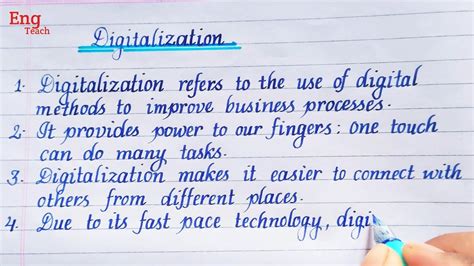 Eng
Teach
Digitalization.
1. Digitalization refers to the use of digital
methods to improve business processes.
2. It provides power to our fingers; One touch
can do many tasks.
3. Digitalization makes it easier to connect with
others from different places.
4. Due to its fast pace technology, digi